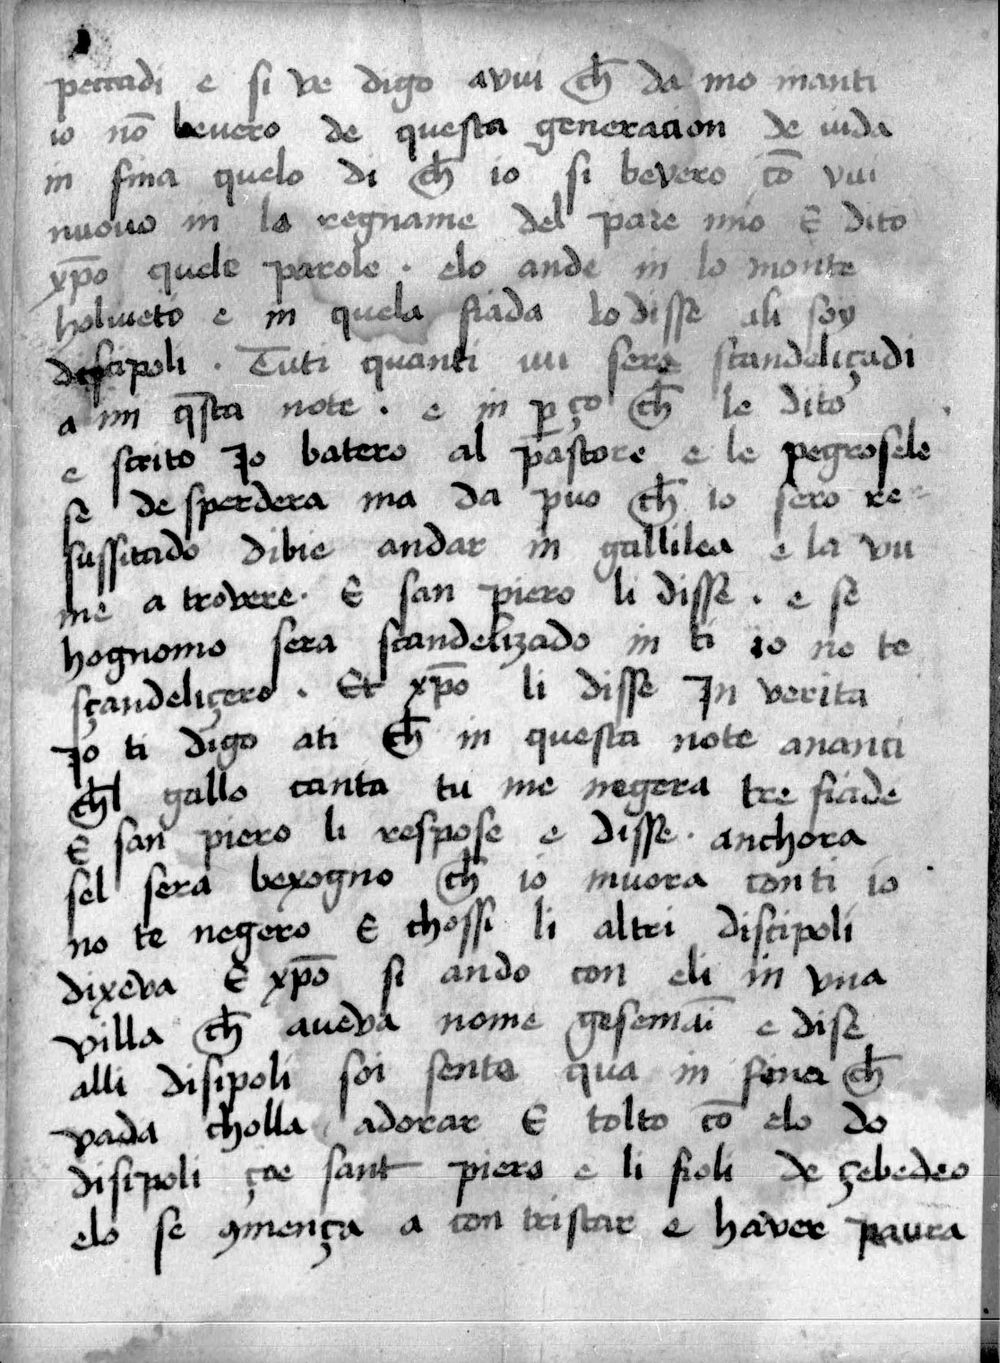 peccadi e si ve digo a vui ch̄ da mo inanti
io nō beuero de questa generacion de uida
in fina quelo di ch̄ io si bevero cō vui
nuouo in lo regname del pare mio E dito
xp̄o quele parole . elo ande in lo monte
holiueto e in quela fiada lo disse ali soy
discipoli . Tuti quanti uu sere scandeliçadi
a mi q̄sta note . e in ꝑ ço ch̄ le dito
e scrito Jo batero al pastore e le pegrosele
se desperdera ma da puo ch̄ io sero re-
sussitado dibie andar in gallilea e la vu
me a trovere . E san piero li disse . e se
hognomo sera scandelizado in ti io no te
sçandeliçero . Et xp̄o li disse In verita
Jo ti digo ati ch̄ in questa note ananci
ch̄l gallo canta tu me negera tre fiade
E san piero li respose e disse . anchora
sel sera bexogno ch̄ io muora con ti io
no te negero E chossi li altri discipoli
dixeva E xp̄o si ando con eli in vna
villa ch̄ aueva nome gesemāi e dise
alli disipoli soi senta qua in fina ch̄
vada cholla adorar E tolto cō elo do
disipoli çoe sant piero e li fioli de çebedeo
elo se ꝯmença a con tristar e haver paura